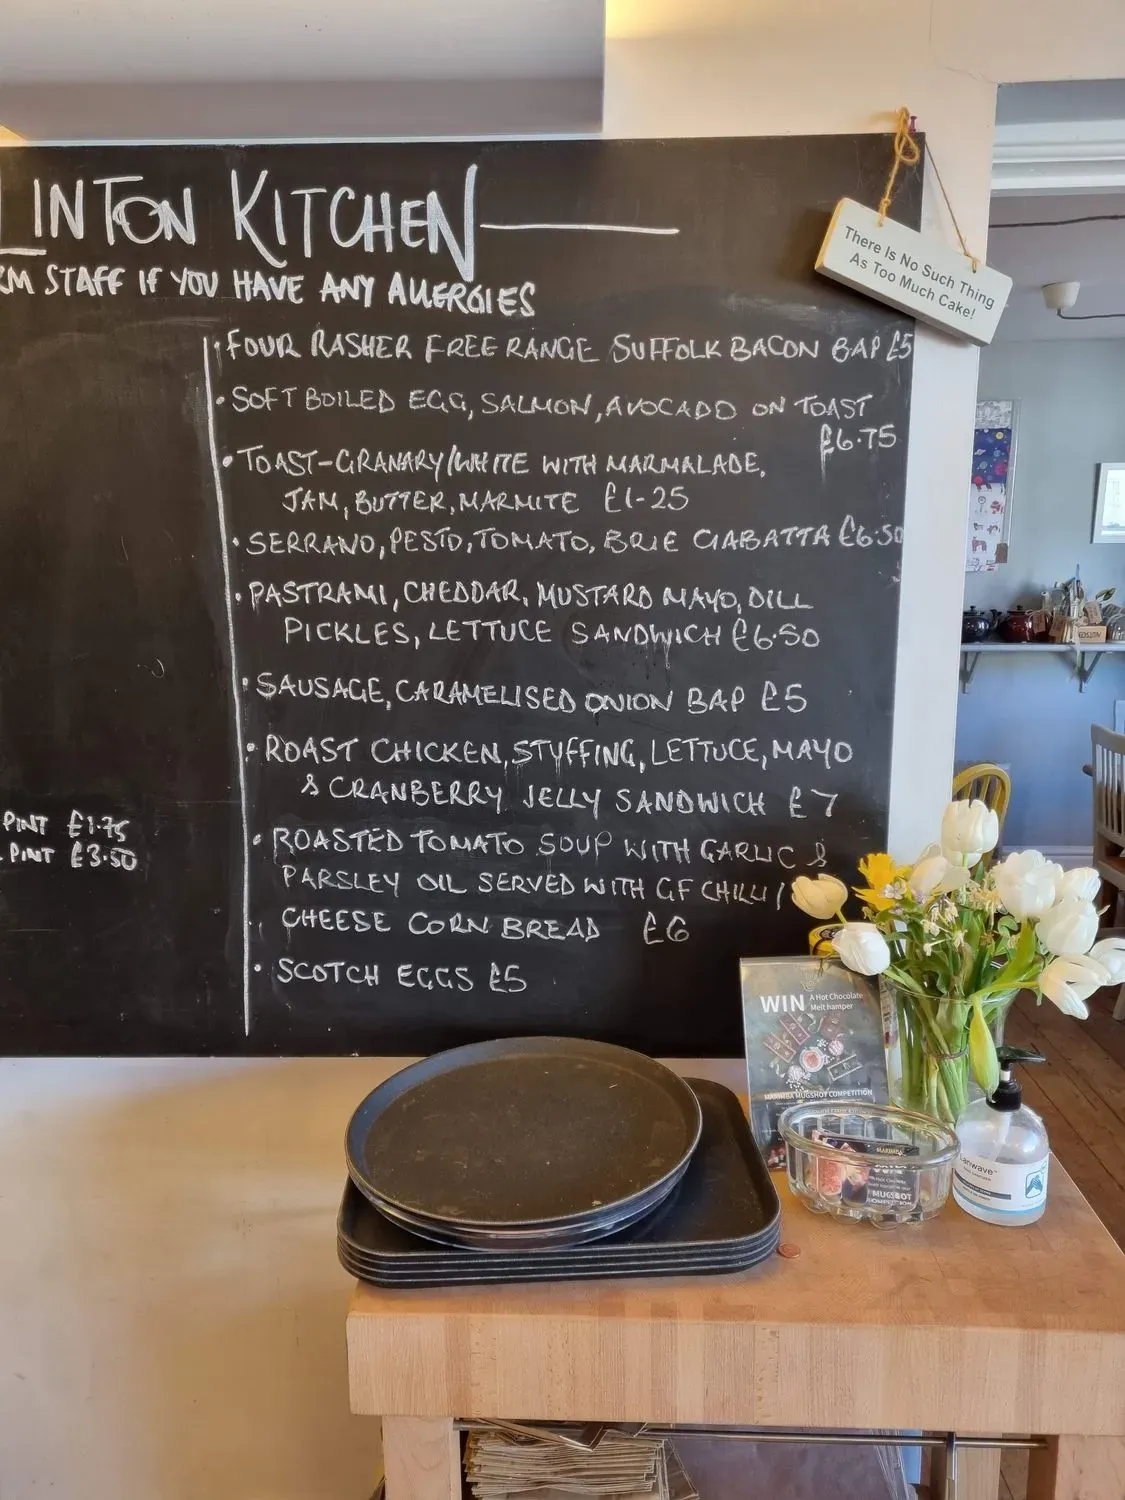 LINTON KITCHEN
RM STAFF IF YOU HAVE ANY ALLERGIES
• FOUR RASHER FREE RANGE SUFFOLK BACON BAP £5
• SOFT BOILED EGG, SALMON, AVOCADO ON TOAST
£6.75
• TOAST-GRANARY/WHITE WITH MARMALADE,
JAM, BUTTER, MARMITE £1-25
• SERRANO, PESTO, TOMATO, BRIE CIABATTA £6.50
• PASTRAMI, CHEDDAR, MUSTARD MAYO, DILL
PICKLES, LETTUCE SANDWICH £6.50
• SAUSAGE, CARAMELISED ONION BAP £5
• ROAST CHICKEN, STUFFING, LETTUCE, MAYO
& CRANBERRY JELLY SANDWICH £7
• ROASTED TOMATO SOUP WITH GARLIC &
PARSLEY OIL SERVED WITH GF CHILLI/
CHEESE CORN BREAD £6
• SCOTCH EGGS £5
PINT £1.75
PINT £3.50
There Is No Such Thing
As Too Much Cake!
WIN A Hot Chocolate
Melt hamper
MUGSHOT COMPETITION
MUGSHOT